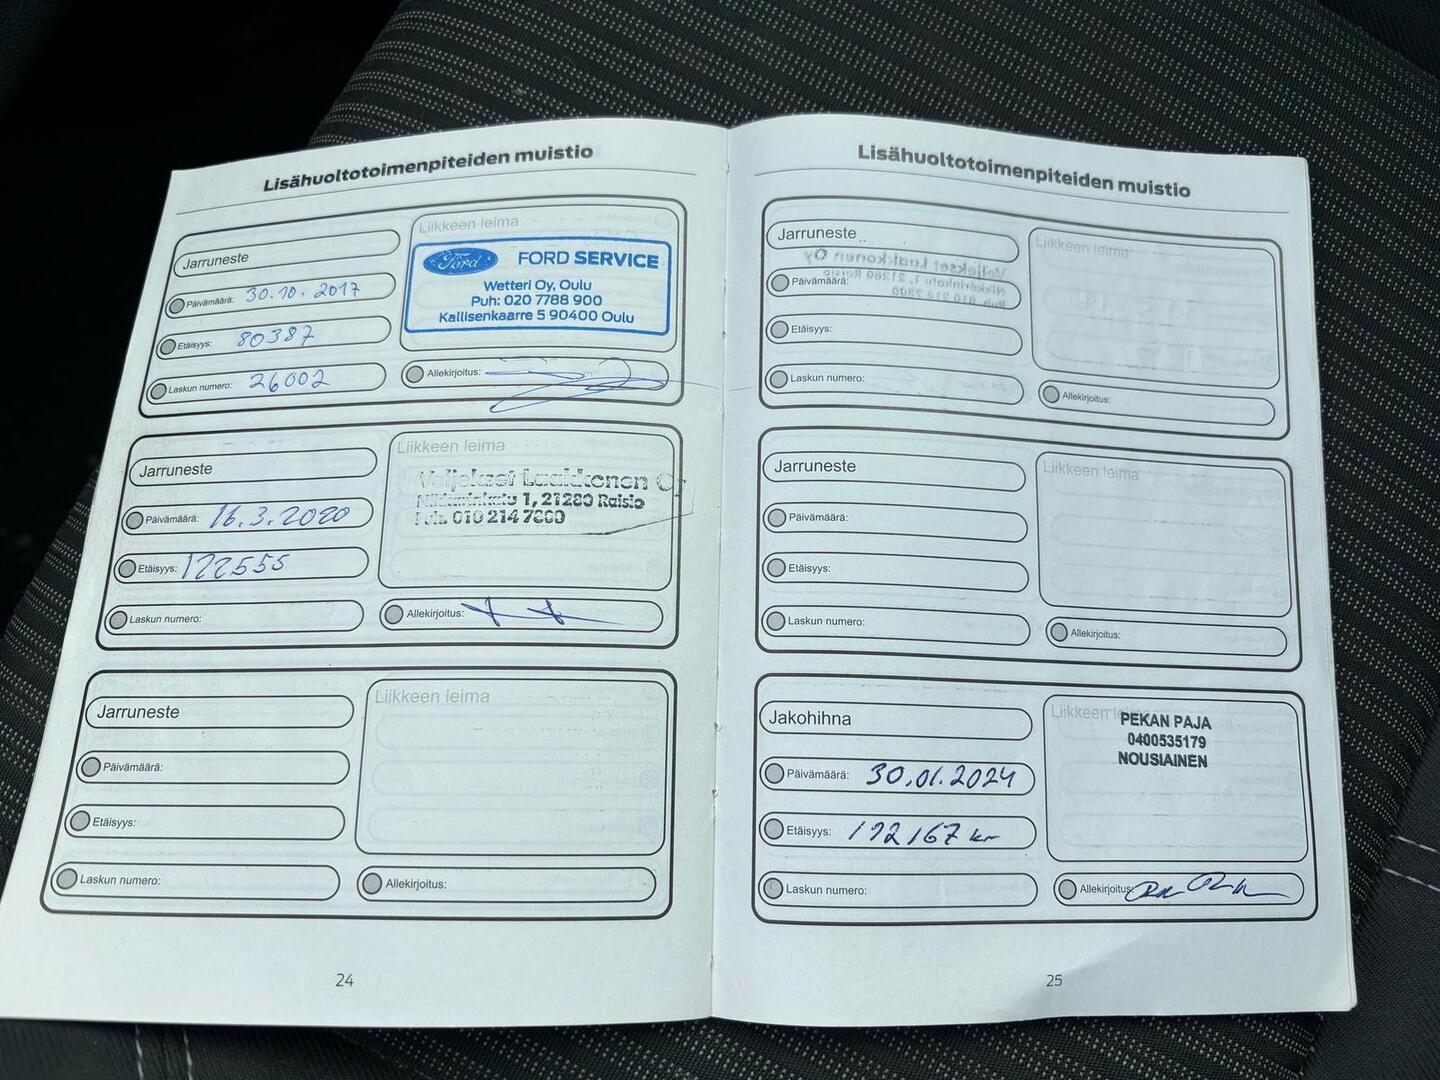 Lisähuoltotoimenpiteiden muistio
Jarruneste
Päivämäärä: 30.10.2017
Etäisyys: 80387
Laskun numero: 26002
Liikkeen leima
Ford
FORD SERVICE
Wetteri Oy, Oulu
Puh: 020 7788 900
Kallisenkaarre 5 90400 Oulu
Allekirjoitus:
Jarruneste
Päivämäärä: 16.3.2020
Etäisyys: 122555
Laskun numero:
Liikkeen leima
Veljekset Laakkonen Oy
1, 21280 Raisio
Puh. 010 214 7800
Allekirjoitus:
Jarruneste
Päivämäärä:
Etäisyys:
Laskun numero:
Liikkeen leima
Allekirjoitus:
24
Lisähuoltotoimenpiteiden muistio
Jarruneste
Päivämäärä:
Etäisyys:
Laskun numero:
Liikkeen leima
Allekirjoitus:
Jarruneste
Päivämäärä:
Etäisyys:
Laskun numero:
Liikkeen leima
Allekirjoitus:
Jakohihna
Päivämäärä: 30.01.2024
Etäisyys: 192167
Laskun numero:
Liikkeen leima
PEKAN PAJA
0400535179
NOUSIAINEN
Allekirjoitus:
25